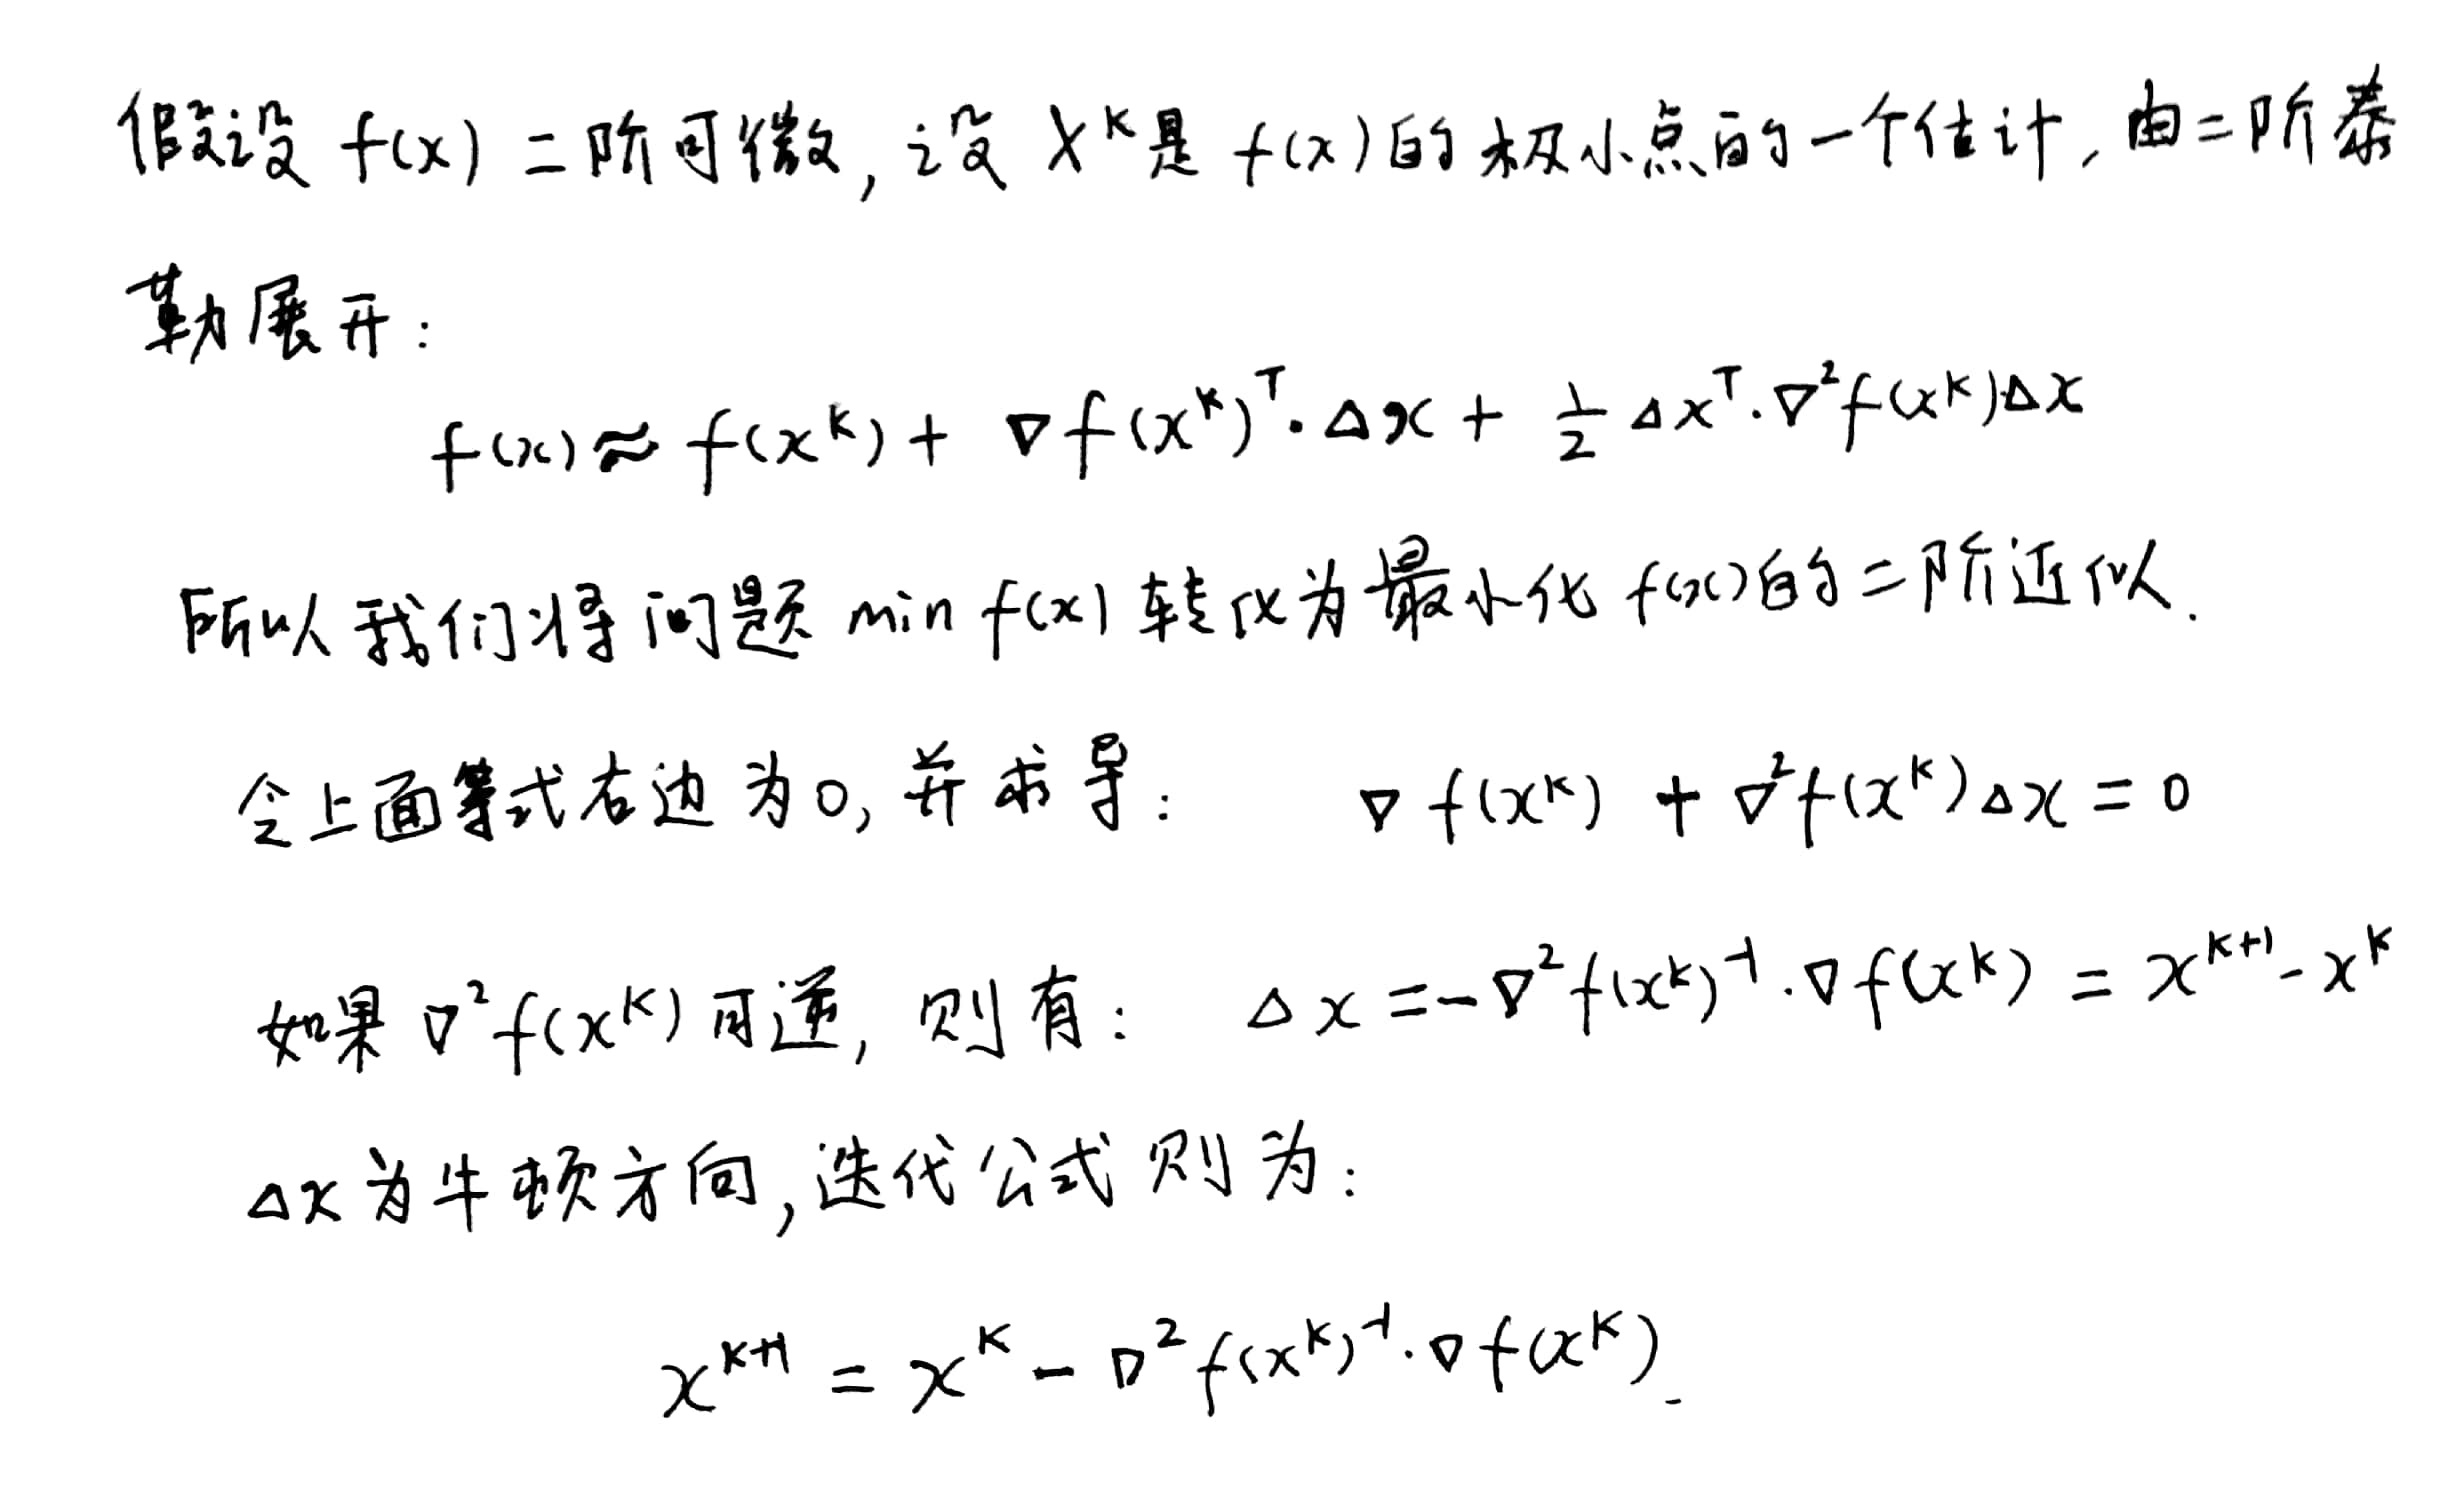 假设 f(x) 二阶可微, 设 x^k 是 f(x) 的极小点的一个估计, 由二阶泰
勒展开:
f(x) ≈ f(x^k) + ∇f(x^k)^T · Δx + 1/2 Δx^T · ∇²f(x^k)Δx
所以我们将问题 min f(x) 转化为最小化 f(x)的二阶近似.
令上面等式右边为0, 并求导: ∇f(x^k) + ∇²f(x^k)Δx = 0
如果 ∇²f(x^k) 可逆, 则有: Δx = -∇²f(x^k)^-1 · ∇f(x^k) = x^k+1 - x^k
Δx 为牛顿方向, 迭代公式则为:
x^k+1 = x^k - ∇²f(x^k)^-1 · ∇f(x^k).